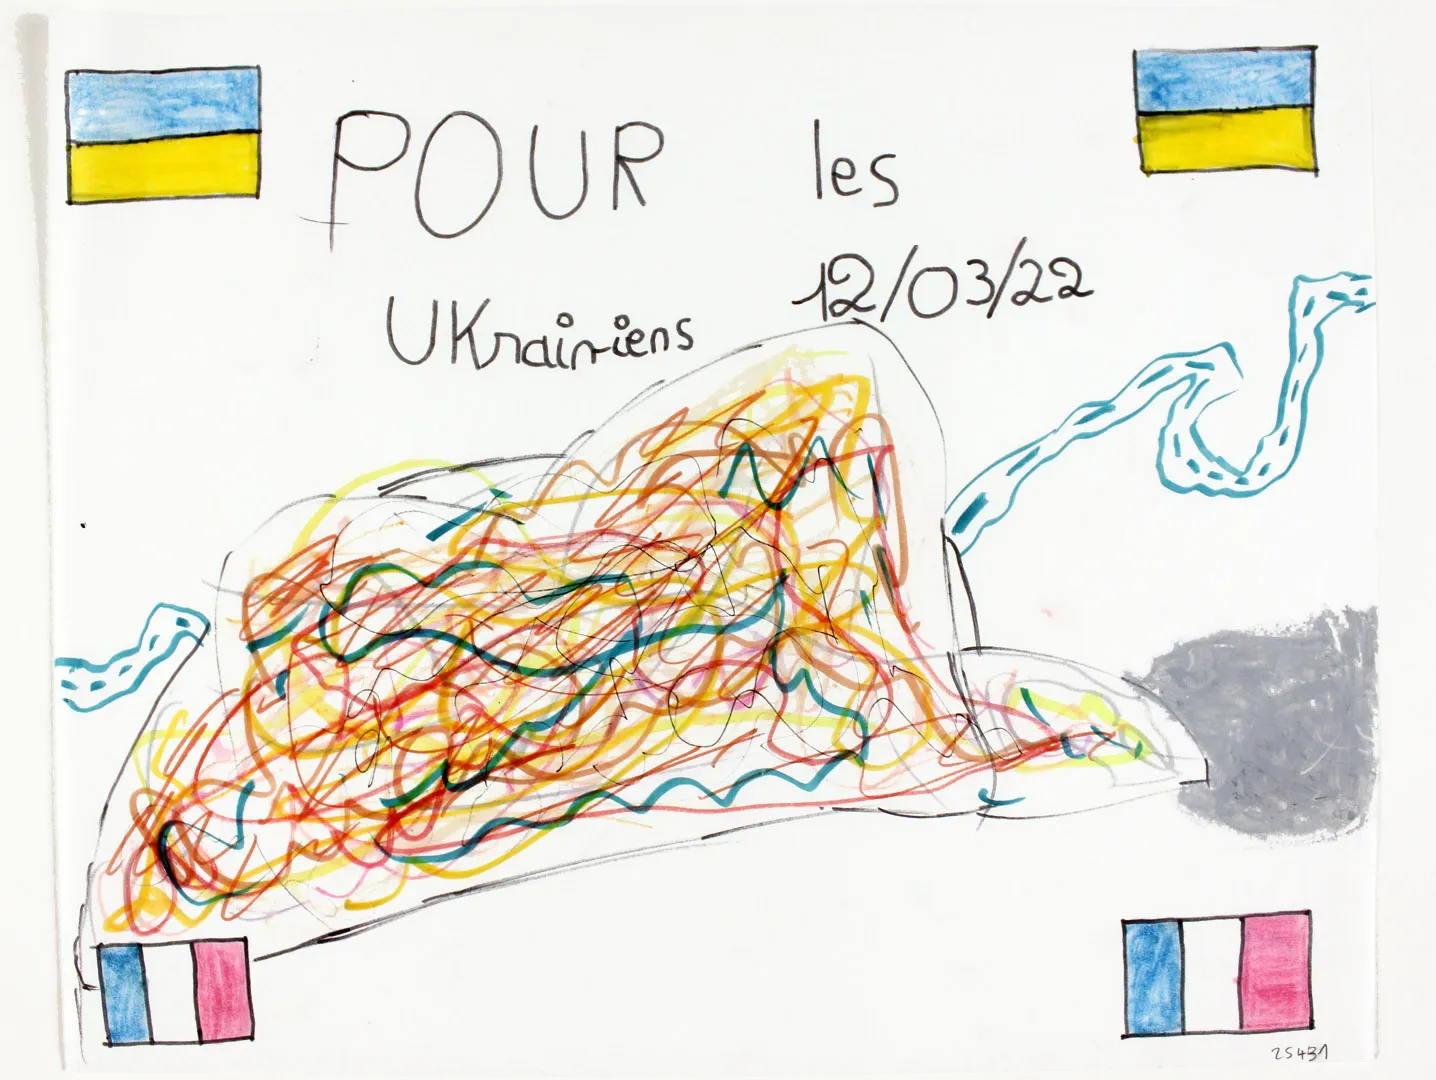 POUR les
12/03/22
UKrainiens
25431